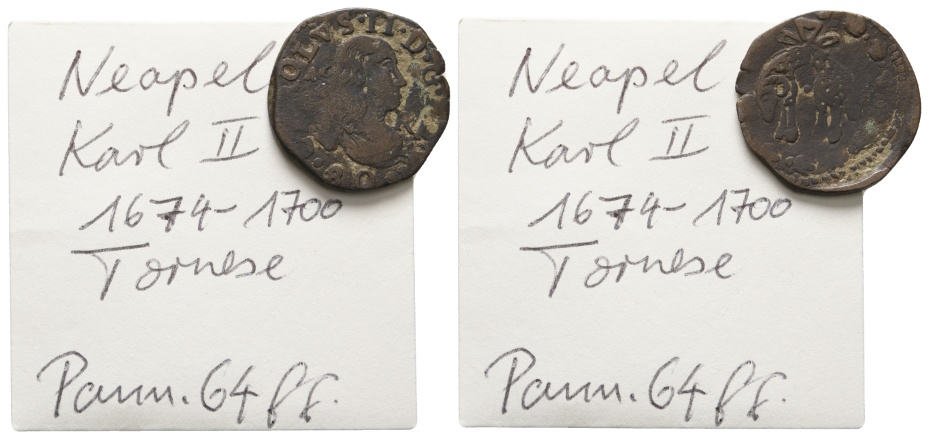 Neapel
Karl II
1674-1700
Tornese
Pann. 64 ff.
OLVS·II·D·G
Neapel
Karl II
1674-1700
Tornese
Pann. 64 ff.